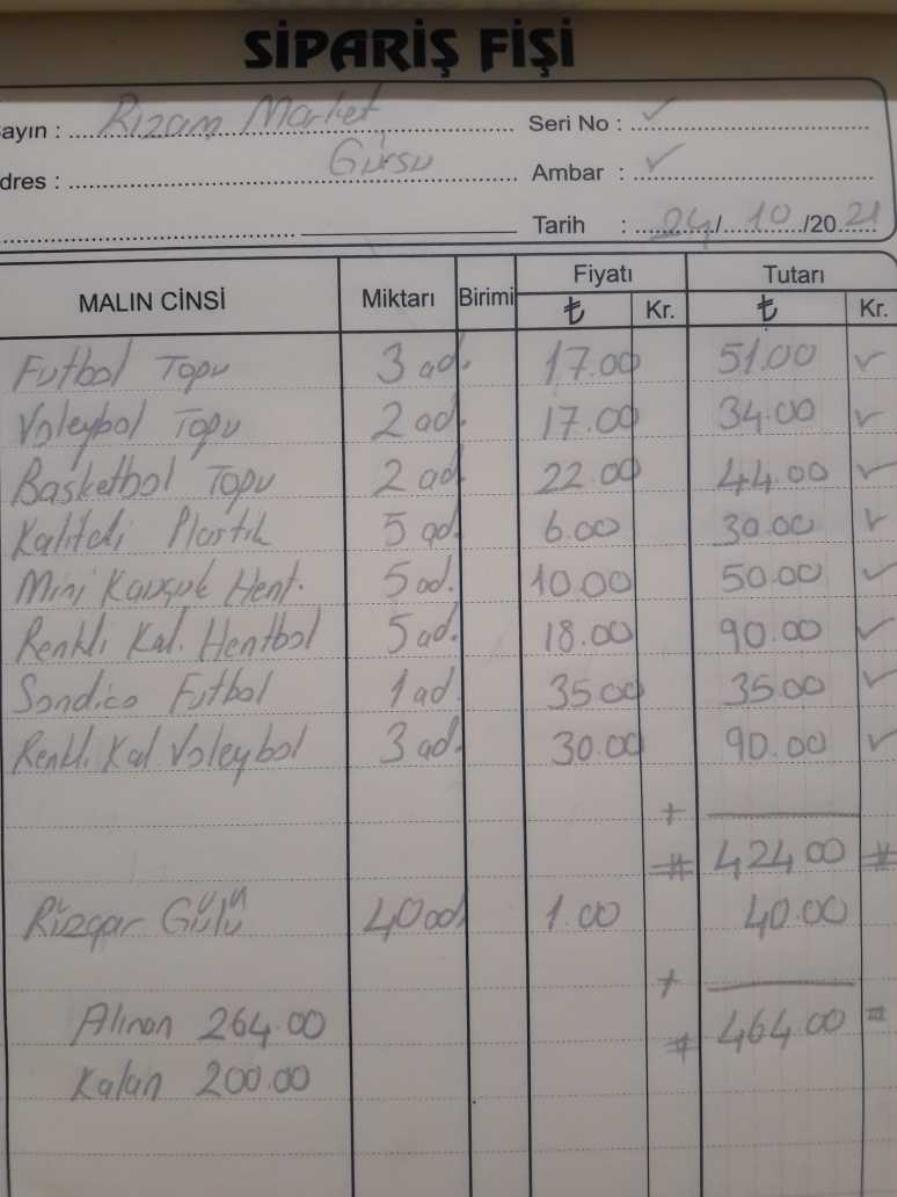 SİPARİŞ FİŞİ
ayın : Rızam Market Seri No : ✓
dres : Gürsu Ambar : ✓
Tarih : 24/10/2021
MALIN CİNSİ Miktarı Birimi Fiyatı Tutarı
₺ Kr. ₺ Kr.
Futbol Topu 3 ad. 17.00 51.00 ✓
Voleybol Topu 2 ad. 17.00 34.00 ✓
Basketbol Topu 2 ad 22.00 44.00 ✓
Kaliteli Plastik 5 ad. 6.00 30.00 ✓
Mini Kauçuk Hent. 5 ad. 10.00 50.00 ✓
Renkli Kal. Hentbol 5 ad. 18.00 90.00 ✓
Sondico Futbol 1 ad. 35.00 35.00 ✓
Renkli Kal Voleybol 3 ad. 30.00 90.00 ✓
+
# 424.00 #
Rüzgar Gülü 40 ad 1.00 40.00
+
Alınan 264.00 # 464.00 =
Kalan 200.00